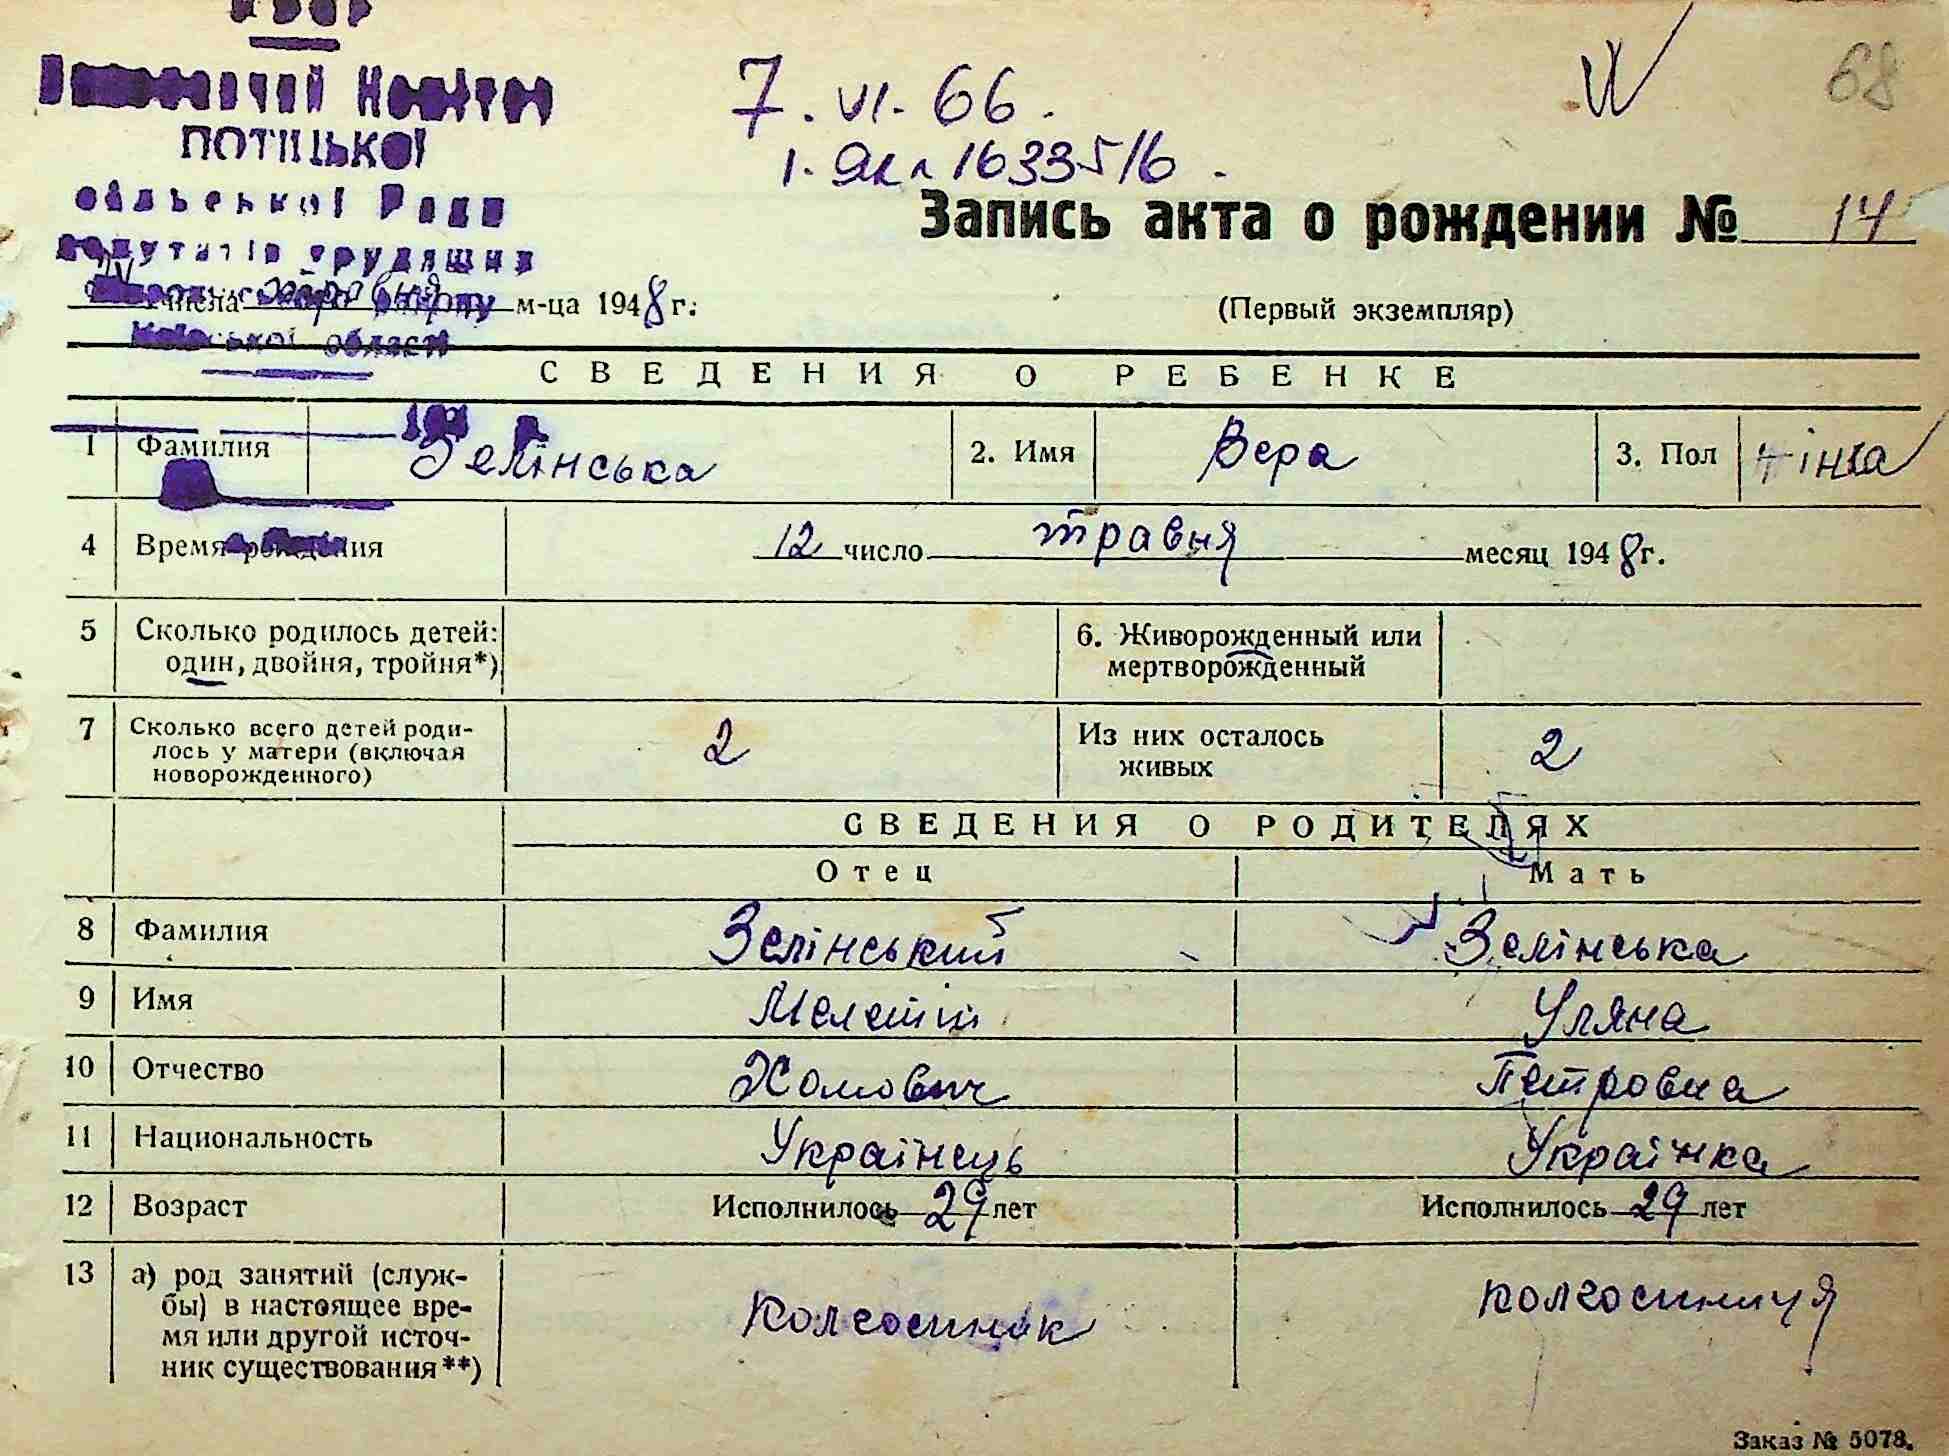 Виконавчий Комітет
ПОТІЦЬКОЇ
сільської Ради
депутатів трудящих
області
7. VI. 66.
68
Запись акта о рождении № 14
числа травня м-ца 1948 г.
(Первый экземпляр)
СВЕДЕНИЯ О РЕБЕНКЕ
1 Фамилия Зелінська 2. Имя Вера 3. Пол жінка
4 Время рождения 12 число травня месяц 1948 г.
5 Сколько родилось детей: 6. Живорожденный или
один, двойня, тройня*) мертворожденный
7 Сколько всего детей роди- Из них осталось
лось у матери (включая 2 живых 2
новорожденного)
СВЕДЕНИЯ О РОДИТЕЛЯХ
Отец Мать
8 Фамилия Зелінський Зелінська
9 Имя Мелетій Уляна
10 Отчество Хомович Петровна
11 Национальность Українець Українка
12 Возраст Исполнилось 29 лет Исполнилось 29 лет
13 а) род занятий (служ-
бы) в настоящее вре- колгоспник колгоспниця
мя или другой источ-
ник существования**)
Заказ № 5078.